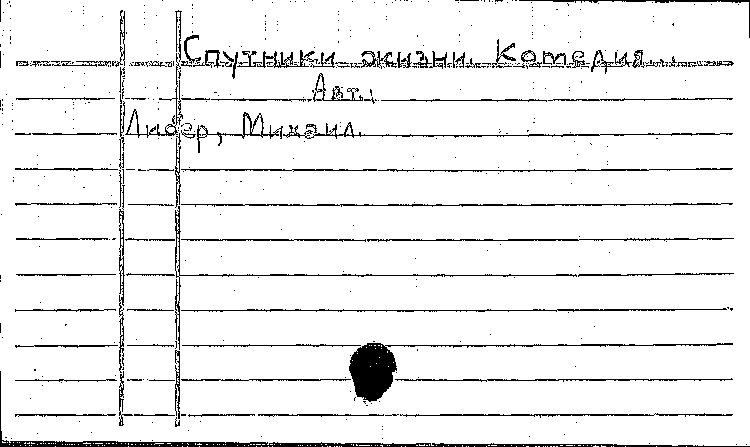 Спутники жизни. Комедия...
Авт.:
Либер, Михаил.